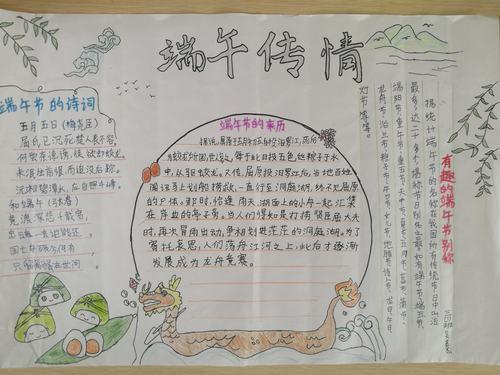 端午传情
端午节的诗词
五月五日(梅尧臣)
屈氏已沉死,楚人哀不容。
何尝奈谗谤,徒欲却蛟龙。
未泯生前恨,而追没后踪。
沅湘碧潭水,应自照千峰。
和端午(张耒)
竞渡深悲千载冤,
忠魂一去讵能还。
国亡身殒今何有,
只留离骚在世间。
端午节的来历
为蛟龙所困,世人哀之,每于此日投五色丝粽子于水
中,以驱蛟龙。又传,屈原投汨罗江后,当地百姓
闻讯马上划船捞救,一直行至洞庭湖,终不见屈原
的尸体。那时,恰逢雨天,湖面上的小舟一起汇集
在岸边的亭子旁。当人们得知是打捞贤臣屈大夫
时,再次冒雨出动,争相划进茫茫的洞庭湖。为了
寄托哀思,人们荡舟江河之上,此后才逐渐
发展成为龙舟竞赛。
有趣的端午节别称
据统计端午节的名称在我国所有传统节日中叫法
最多,达二十多个,堪称节日别名之最。如有端午节、端五节、
端阳节、重午节、重五节、天中节、夏节、五月节、菖节、蒲节、
龙舟节、浴兰节、粽子节、午日节、女儿节、地腊节、诗人节、龙日、午日、
灯节等等。